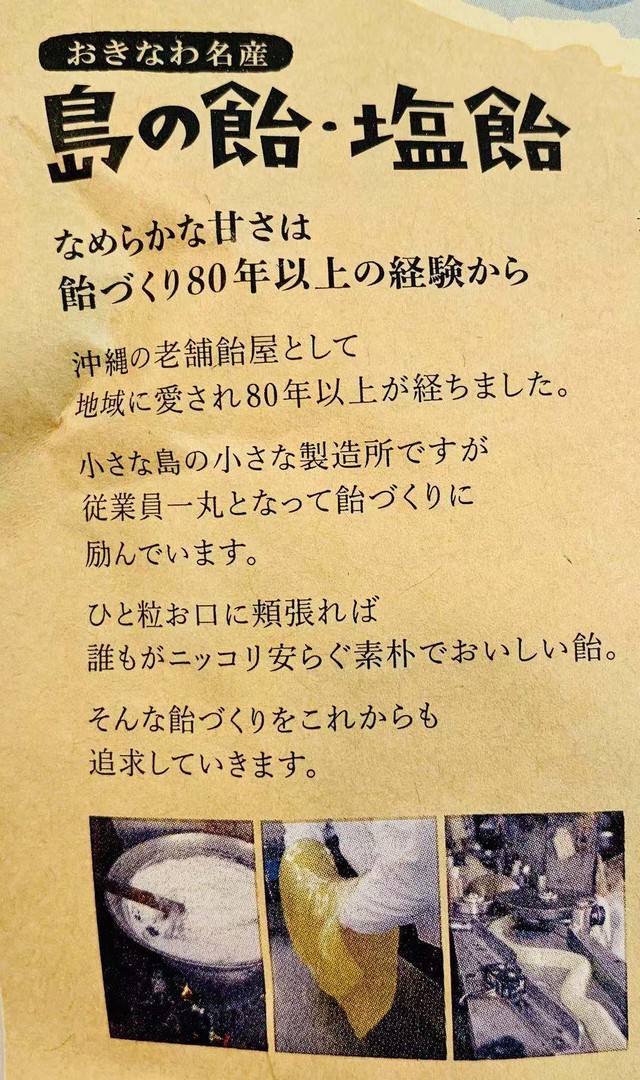 おきなわ名産
島の飴・塩飴
なめらかな甘さは
飴づくり80年以上の経験から
沖縄の老舗飴屋として
地域に愛され80年以上が経ちました。
小さな島の小さな製造所ですが
従業員一丸となって飴づくりに
励んでいます。
ひと粒お口に頬張れば
誰もがニッコリ安らぐ素朴でおいしい飴。
そんな飴づくりをこれからも
追求していきます。